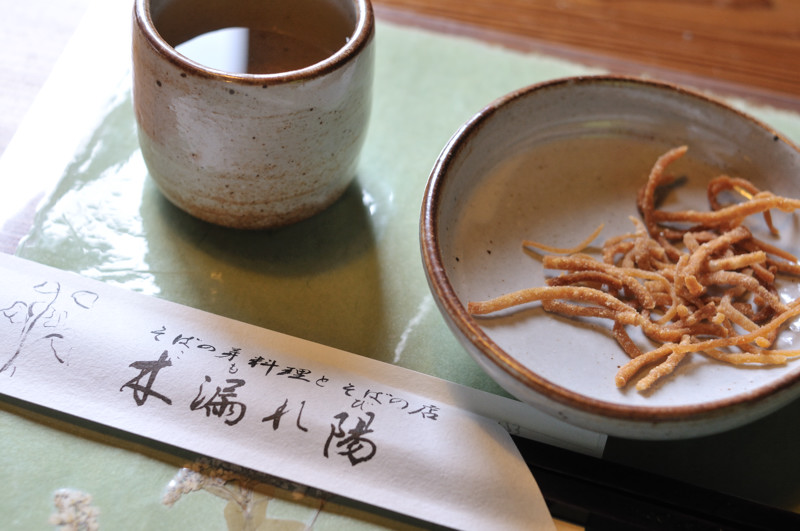 そばの弄も料理とそばの店
木漏れ陽
び